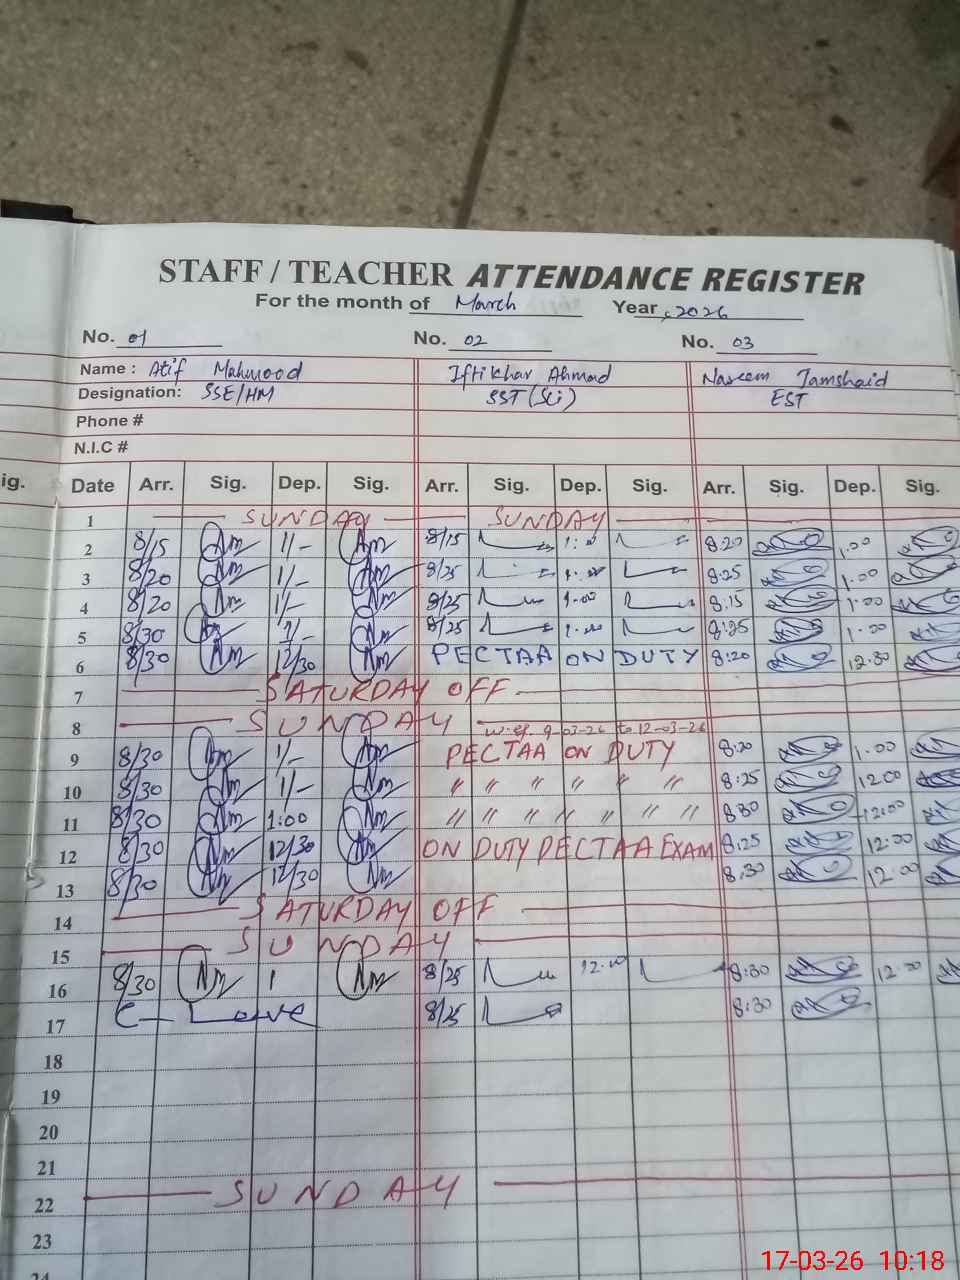 STAFF / TEACHER ATTENDANCE REGISTER
For the month of March Year 2026
No. 01 No. 02 No. 03
Name : Atif Mahmood Iftikhar Ahmad Naseem Jamshaid
Designation: SSE/HM SST (Sci) EST
Phone #
N.I.C #
ig. Date Arr. Sig. Dep. Sig. Arr. Sig. Dep. Sig. Arr. Sig. Dep. Sig.
1 SUNDAY SUNDAY
2 8/15 Am 1/- Am 8/15 1:00 8:20 1.00
3 8/20 Am 1/- Am 8/25 1.00 8:25 1.00
4 8/20 Am 1/- Am 8/25 1.00 8:15 1.00
5 8/30 Am 1/- Am 8/25 1.00 8:25 1.00
6 8/30 Am 12/30 Am PECTAA ON DUTY 8:20 12.30
7 SATURDAY OFF
8 SUNDAY w.ef. 9-03-26 to 12-03-26
9 8/30 Am 1/- Am PECTAA ON DUTY 8:20 1.00
10 8/30 Am 1/- Am " " " " " " 8:25 12.00
11 8/30 Am 1:00 Am " " " " " " " 8:30 12:00
12 8/30 Am 12/30 Am ON DUTY PECTAA EXAM 8:25 12:00
13 8/30 Am 12/30 Am 8:30 12.00
14 SATURDAY OFF
15 SUNDAY
16 8/30 Am 1 Am 8/25 12.00 8:30 12.00
17 C- Leave 8/25 8:30
18
19
20
21
22 SUNDAY
23
24
17-03-26 10:18